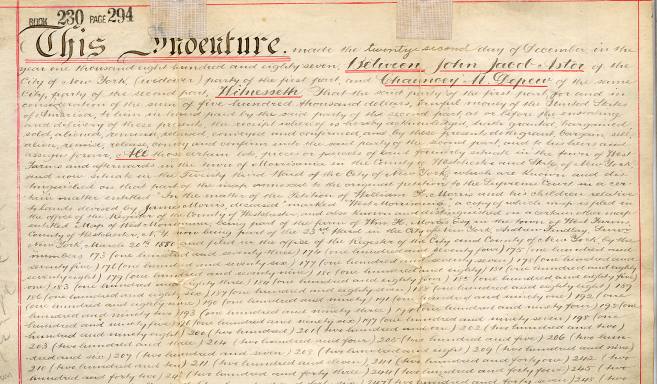 BOOK 230 PAGE 294
This Indenture, made the twenty second day of December in the
year one thousand eight hundred and eighty seven, Between John Jacob Astor of the
City of New York, (widower) party of the first part, and Chauncey M. Depew of the same
City, party of the second part, Witnesseth That the said party of the first part, for and in
consideration of the sum of five hundred thousand dollars, lawful money of the United States
of America, to him in hand paid by the said party of the second part at or before the ensealing
and delivery of these presents, the receipt whereof is hereby acknowledged, hath granted, bargained
sold, aliened, remised, released, conveyed and confirmed, and by these presents doth grant, bargain, sell,
alien, remise, release, convey and confirm unto the said party of the second part, and to his heirs and
assigns forever, All those certain lots, pieces or parcels of land formerly situate in the town of West
Farms and afterwards in the town of Morrisania in the County of Westchester and State of New York
and now situate in the Twenty third Ward of the City of New York, which are known and dis-
tinguished on that part of the map annexed to the original petition to the Supreme Court in a cer-
tain matter entitled "In the matter of the Petition of William H. Morris and his children relative
to lands devised by James Morris, deceased" marked "West Morrisania" a copy of which map is filed in
the office of the Register of the County of Westchester, and also known and distinguished on a certain other map
entitled Map of West Morrisania, being part of the farm of Wm H. Morris Esq. in the town of West Farms,
County of Westchester, N.Y. now being part of the 23rd Ward in the City of New York, Andrew Findlay, Surveyor
New York, March 20th 1880 and filed in the office of the Register of the City and County of New York by the
numbers 173 (one hundred and seventy three) 174 (one hundred and seventy four) 175 (one hundred and
seventy five) 176 (one hundred and seventy six) 177 (one hundred and seventy seven) 178 (one hundred and
seventy eight) 179 (one hundred and seventy nine) 180 (one hundred and eighty) 181 (one hundred and eighty
one) 183 (one hundred and eighty three) 184 (one hundred and eighty four) 185 (one hundred and eighty five)
186 (one hundred and eighty six) 187 (one hundred and eighty seven) 188 (one hundred and eighty eight) 189
(one hundred and eighty nine) 190 (one hundred and ninety) 191 (one hundred and ninety one) 192 (one
hundred and ninety two) 193 (one hundred and ninety three) 194 (one hundred and ninety four) 195 (one
hundred and ninety five) 196 (one hundred and ninety six) 197 (one hundred and ninety seven) 198 (one
hundred and ninety eight) 200 (two hundred) 201 (two hundred and one) 202 (two hundred and two)
203 (two hundred and three) 204 (two hundred and four) 205 (two hundred and five) 206 (two hun-
dred and six) 207 (two hundred and seven) 208 (two hundred and eight) 209 (two hundred and nine)
210 (two hundred and ten) 211 (two hundred and eleven) 241 (two hundred and forty one) 242 (two
hundred and forty two) 243 (two hundred and forty three) 244 (two hundred and forty four) 245 (two